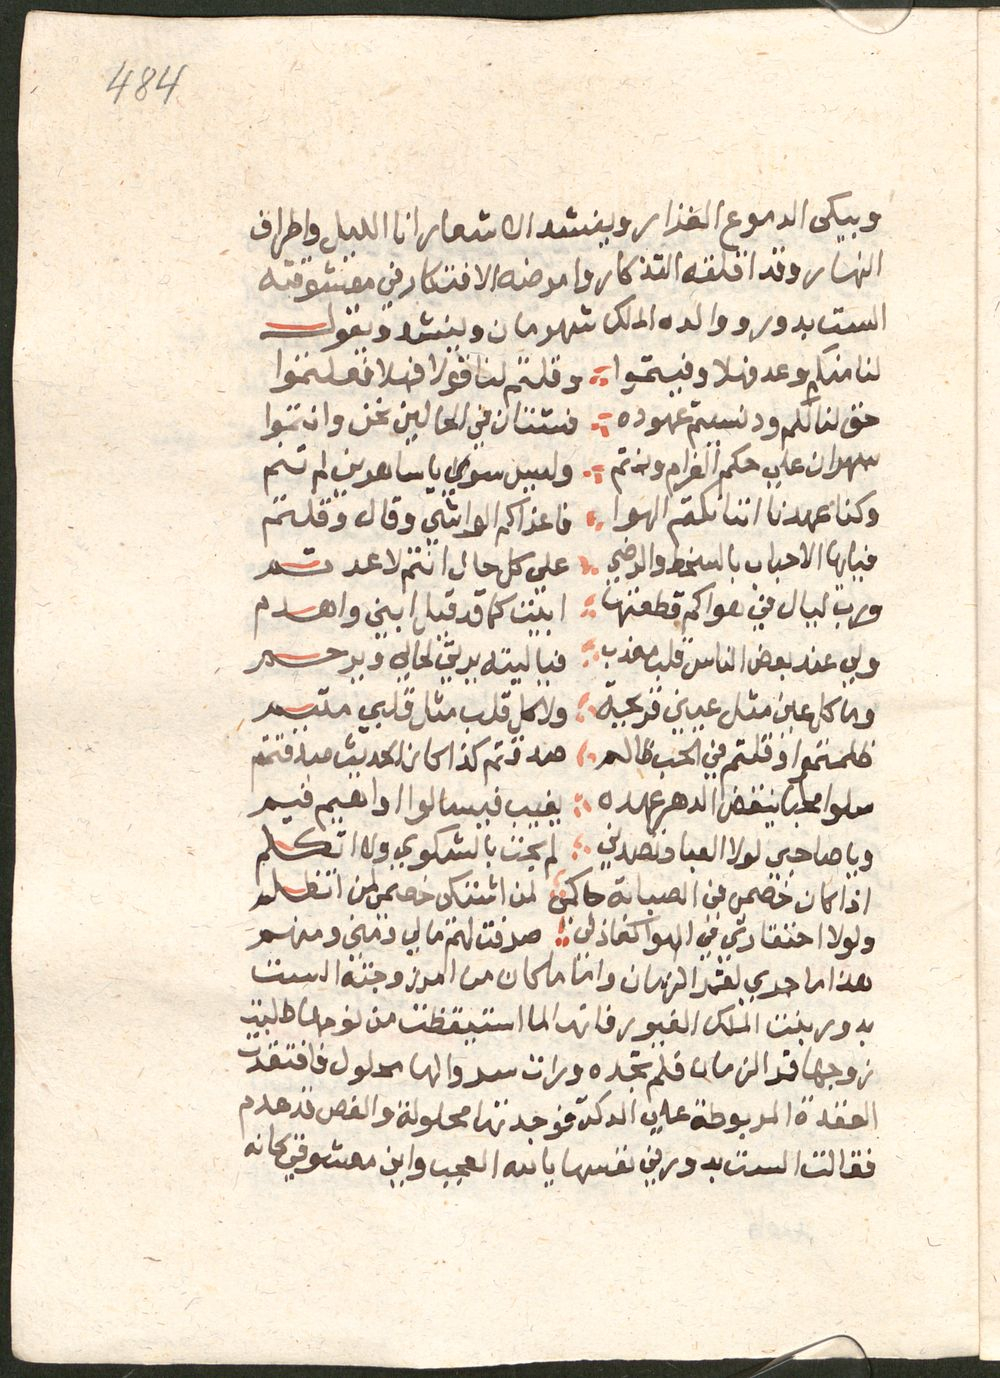 484
ويبكى الدموع الغذار وينشد الاشعار انا الليل واطراف
النهار وقد اقلقه التذكار وامرضه الافتكار في معشوقته
الست بدور ووالده الملك شهرمان وينشد ويقول
لنا منكم وعد فهلا وفيتموا وقلتم لنا قولا فهلا فعلتموا
حفظنا لكم ود نسيتم عهوده فشتان في الحالين نحن وانتموا
سهران على حكم الغرام ونمتم وليس سوي يا ساهرين لم تنم
وكنا عهدنا اننا نكتم الهوا فاغراكم الواشي وقال وقلتم
فيايها الاحباب بالسخط والرضي على كل حال انتم لا عدمتم
ورب ليال في هواكم قطعتها ابيت كما قد قيل ابني واهدم
ولي عند بعض الناس قلب معذب فيا ليته يرثي لحاله ويرحم
وما كل عين مثل عيني قريحة ولا كل قلب مثل قلبي متيم
ظلمتموا وقلتم في الحب ظالم صدقتم كذا كان الحديث صدقتم
سلوا محبا ينقض الدهر عهده يغيب فيسالوا او اهيم فيم
ويا صاحبي لولا العباد تصدني لم بحت بالشكوي ولا اتكلم
اذا كان خصمي في الصبابة حاكمي لمن اشتكى خصمي لمن اتظلم
ولولا احتقارتي في الهوا كفاذلي صرفت لهم مالي ومني ومنهم
هذا ما جري لقمر الزمان واما ما كان من امر زوجته الست
بدور بنت الملك الغيور فانها لما استيقظت من نومها طلبت
زوجها قمر الزمان فلم تجده ورات سروالها محلول فافتقدت
العقدة المربوطة على الدكة فوجدتها محلولة والفص قد عدم
فقالت الست بدور في نفسها يالله العجب واين معشوقي كانه